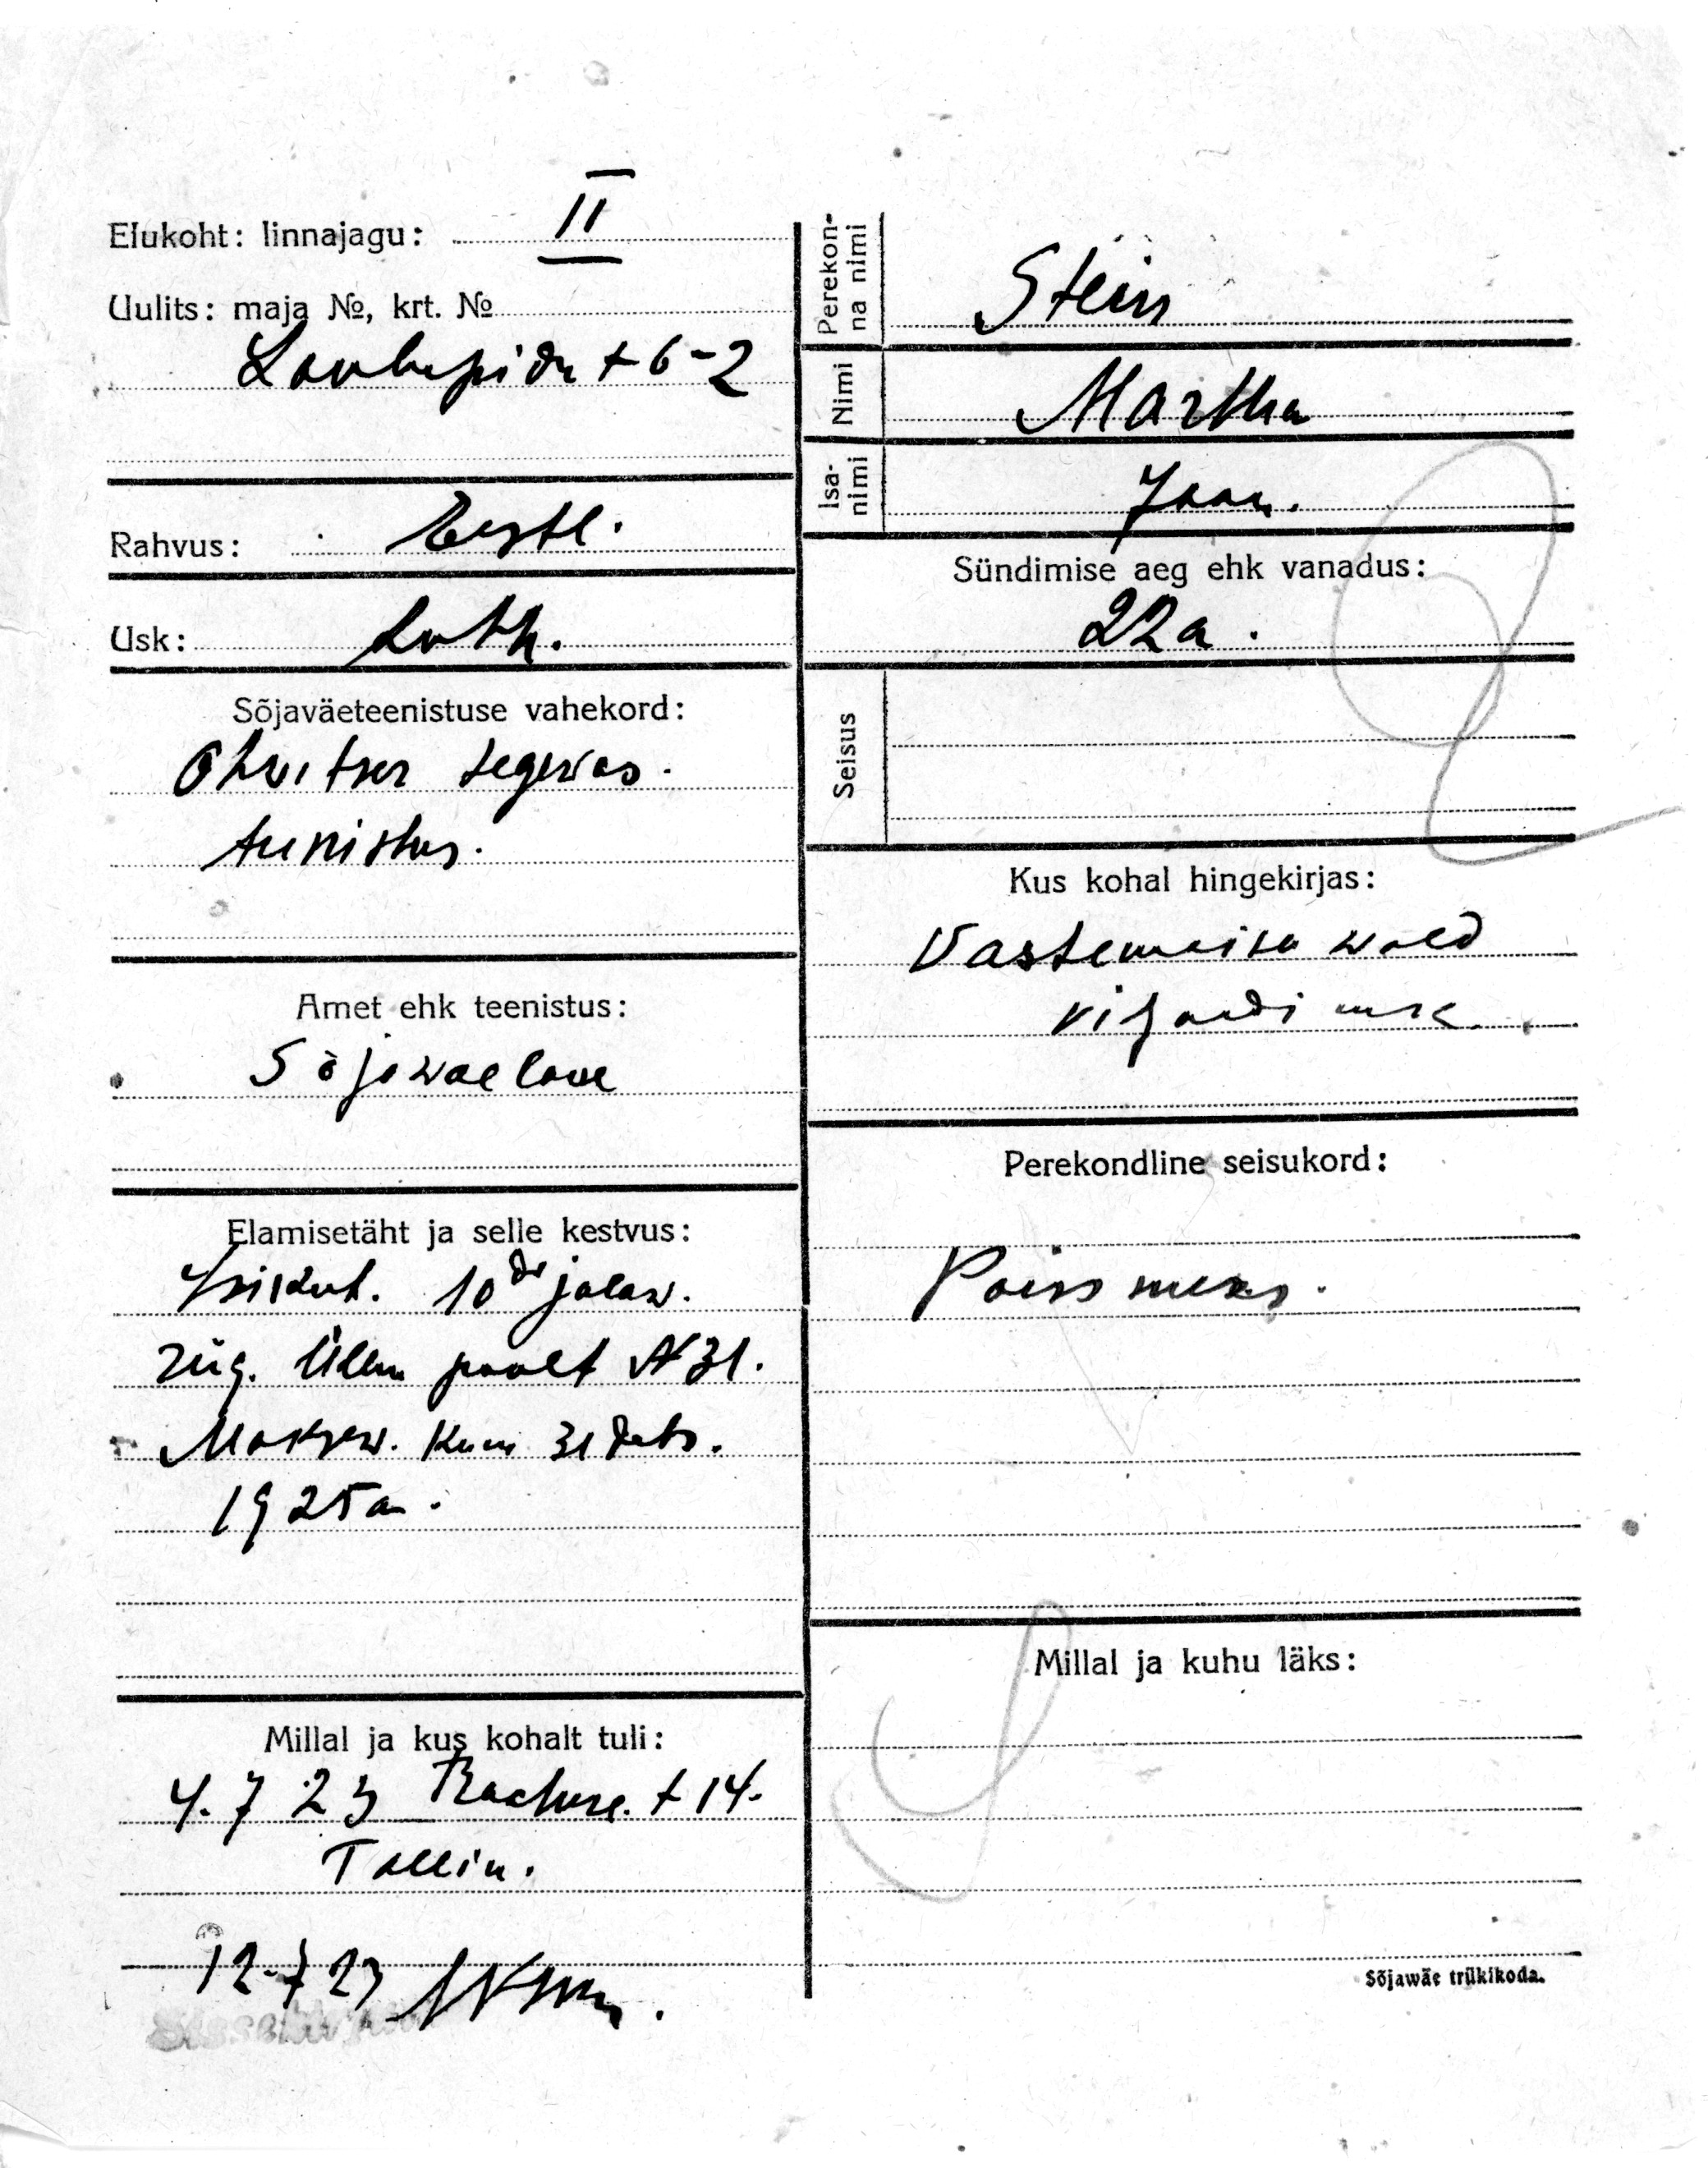 Elukoht: linnajagu: II
Uulits: maja №, krt. №
Laulupidu t 6-2
Rahvus: Eestl.
Usk: Luth.
Sõjaväeteenistuse vahekord:
Ohvitser tegevas.
teenistus.
Amet ehk teenistus:
Sõjawaelane
Elamisetäht ja selle kestvus:
Isikut. 10 jalaw.
rüg. Ülem poolt N 31.
Maksew. Kuni 31 Dets.
1925 a.
Millal ja kus kohalt tuli:
4. 7 23 t 14.
Tallin.
12-7 23
Perekon-
na nimi
Stein
Nimi
Martha
Isa-
nimi
Jaan.
Sündimise aeg ehk vanadus:
22 a.
Seisus
Kus kohal hingekirjas:
Vastemoisa wald
Viljandi mrk.
Perekondline seisukord:
Poissmees.
Millal ja kuhu läks:
Sõjawäe trükikoda.